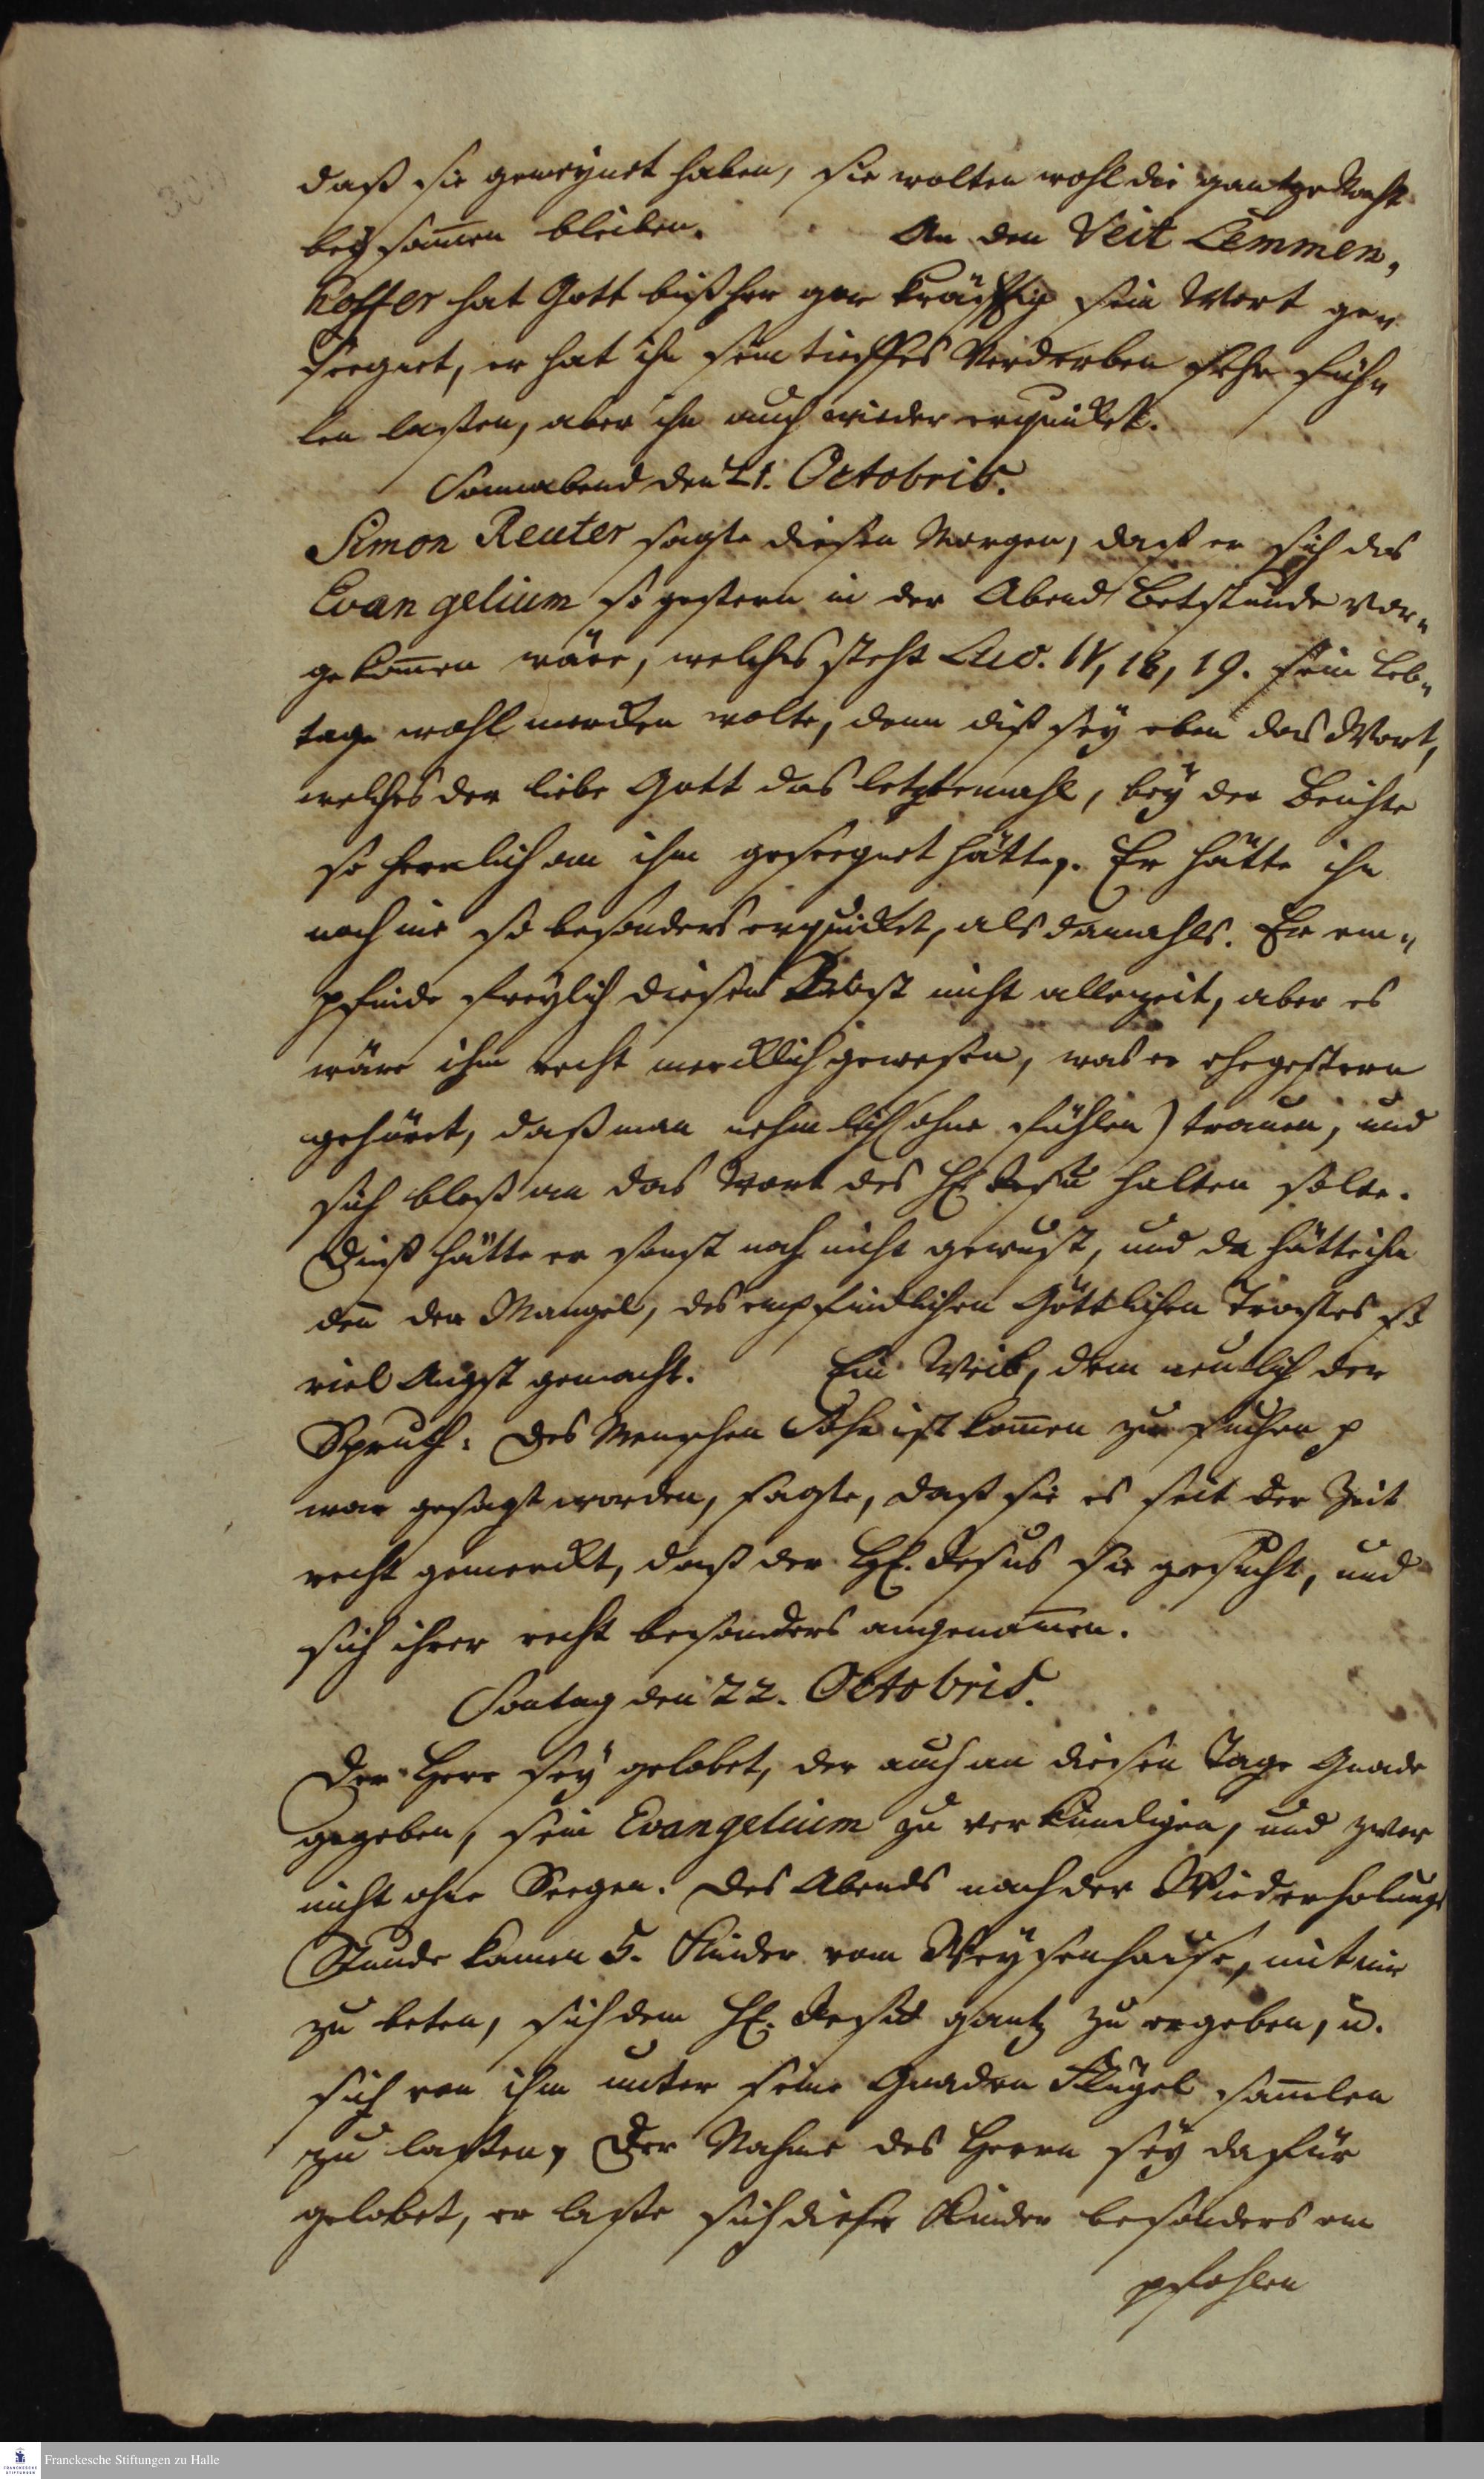 300
daß sie gemeynet haben, sie wolten wohl die gantze Nacht
beysam̅en bleiben. An den Veit Lemmen,
hoffer hat Gott bißher gar kräfftig sein Wort ge„
seegnet, er hat ihn sein tieffes Verderben sehr füh„
len lassen, aber ihn auch wieder erquicket.
Sonnabend den 21. Octobris.
Simon Reuter sagte diesen Morgen, daß er sich das
Evangelium so gestern in der Abend Betstunde vor„
gekom̅en wäre, welches steht Luc. IV, 18, 19. sein Leb„
tage wohl mercken wolte, denn diß sey eben das Wort,
welches der liebe Gott das letztemahl, bey der Beichte
so herrlich an ihm geseegnet hätte. Er hätte ihn
noch nie so besonders erquicket, als damahls. Er em„
pfinde freylich diesen Trost nicht allezeit, aber es
wäre ihm recht mercklich gewesen, was er ehegestern
gehöret, daß man nehmlich (ohne fühlen) trauen, und
sich bloß an das Wort des H. Jesu halten solte.
Dieß hätte er sonst noch nicht gewust, und da hätte ihn
den̅ der Mangel, des empfindlichen Göttlichen Trostes so
viel Angst gemacht. Ein Weib, dem neulich der
Spruch: Des Menschen Sohn ist kom̅en zu suchen p
war gesagt worden, sagte, daß sie es seit der Zeit
recht gemerckt, daß der H. Jesus sie gesucht, und
sich ihrer recht besonders angenom̅en.
Sontag den 22. Octobris.
Der Herr sey gelobet, der auch an diesen Tage Gnade
gegeben, sein Evangelium zu verkündigen, und zwar
nicht ohne Seegen. Des Abends nach der Wiederholungs
Stunde kamen 5. Kinder vom Weysenhause, mit mir
zu beten, sich dem H. Jesu gantz zu ergeben, u.
sich von ihm unter seine Gnaden Flügel sam̅len
zu lassen, Der Nahme des Herrn sey dafür
gelobet, er lasse sich diese Kinder besonders em
pfohlen
Franckesche Stiftungen zu Halle